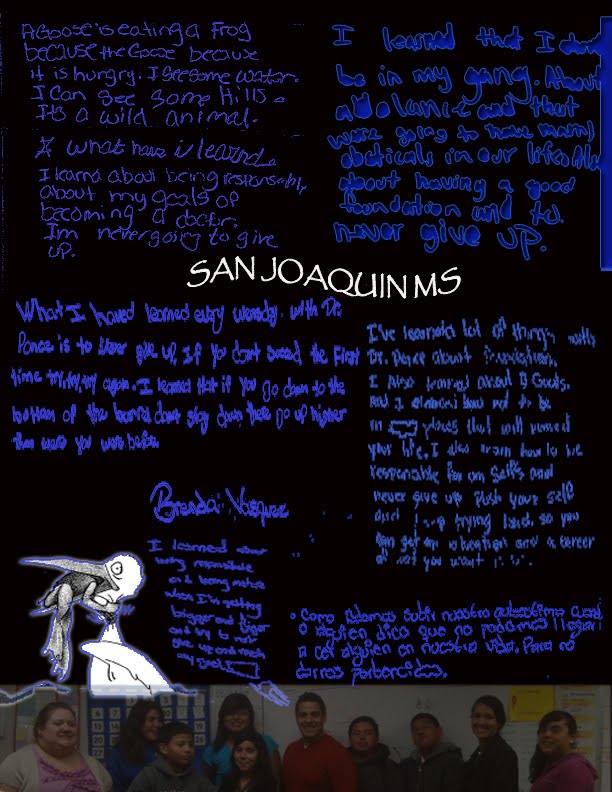 A Goose is eating a Frog
because the Goose because
it is hungry. I see some water.
I Can see some Hills.
Its a wild animal.
what have i learned.
I learnd about being responsably
about my goals of
becoming a doctir.
Im never going to give
up.
I learned that I dont
be in my gang. About
abolance and that
were going to have many
obsticals in our life. Also
about having a good
foundation and to
never give up.
SAN JOAQUIN MS
What I haved learned every wensday with Dr.
Ponce is to never give up, If you dont succed the First
time try, try, try again. I learned that if you go down to the
bottom of the barrel dont stay down there go up higher
then were you were before.
I've learned lot of things with
Dr. Ponce about foundation.
I Also learned about Goals.
and I learned how not to be
in places that will runed
your life. I also learn how to be
responsable for am Self's and
never give up Push your self
and trying hard so you
can get an education and a career
you want
Brenda Vasquez
I learned about
being responsible
and being mature
when I'm getting
bigger and bigger
and try to never
give up and reach
my goal
Como podemos subir nuestro autoestima cuand
o alguien dice que no podemos llegar
a cer alguien en nuestra vida. Para no